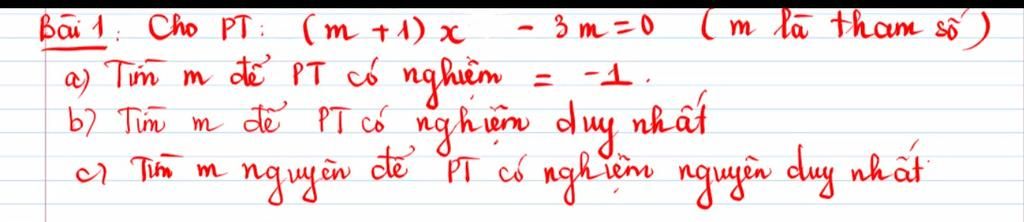 Bài 1: Cho PT: (m + 1) x - 3m = 0 (m là tham số)
a) Tìm m để PT có nghiệm = -1.
b) Tìm m để PT có nghiệm duy nhất
c) Tìm m nguyên để PT có nghiệm nguyên duy nhất.